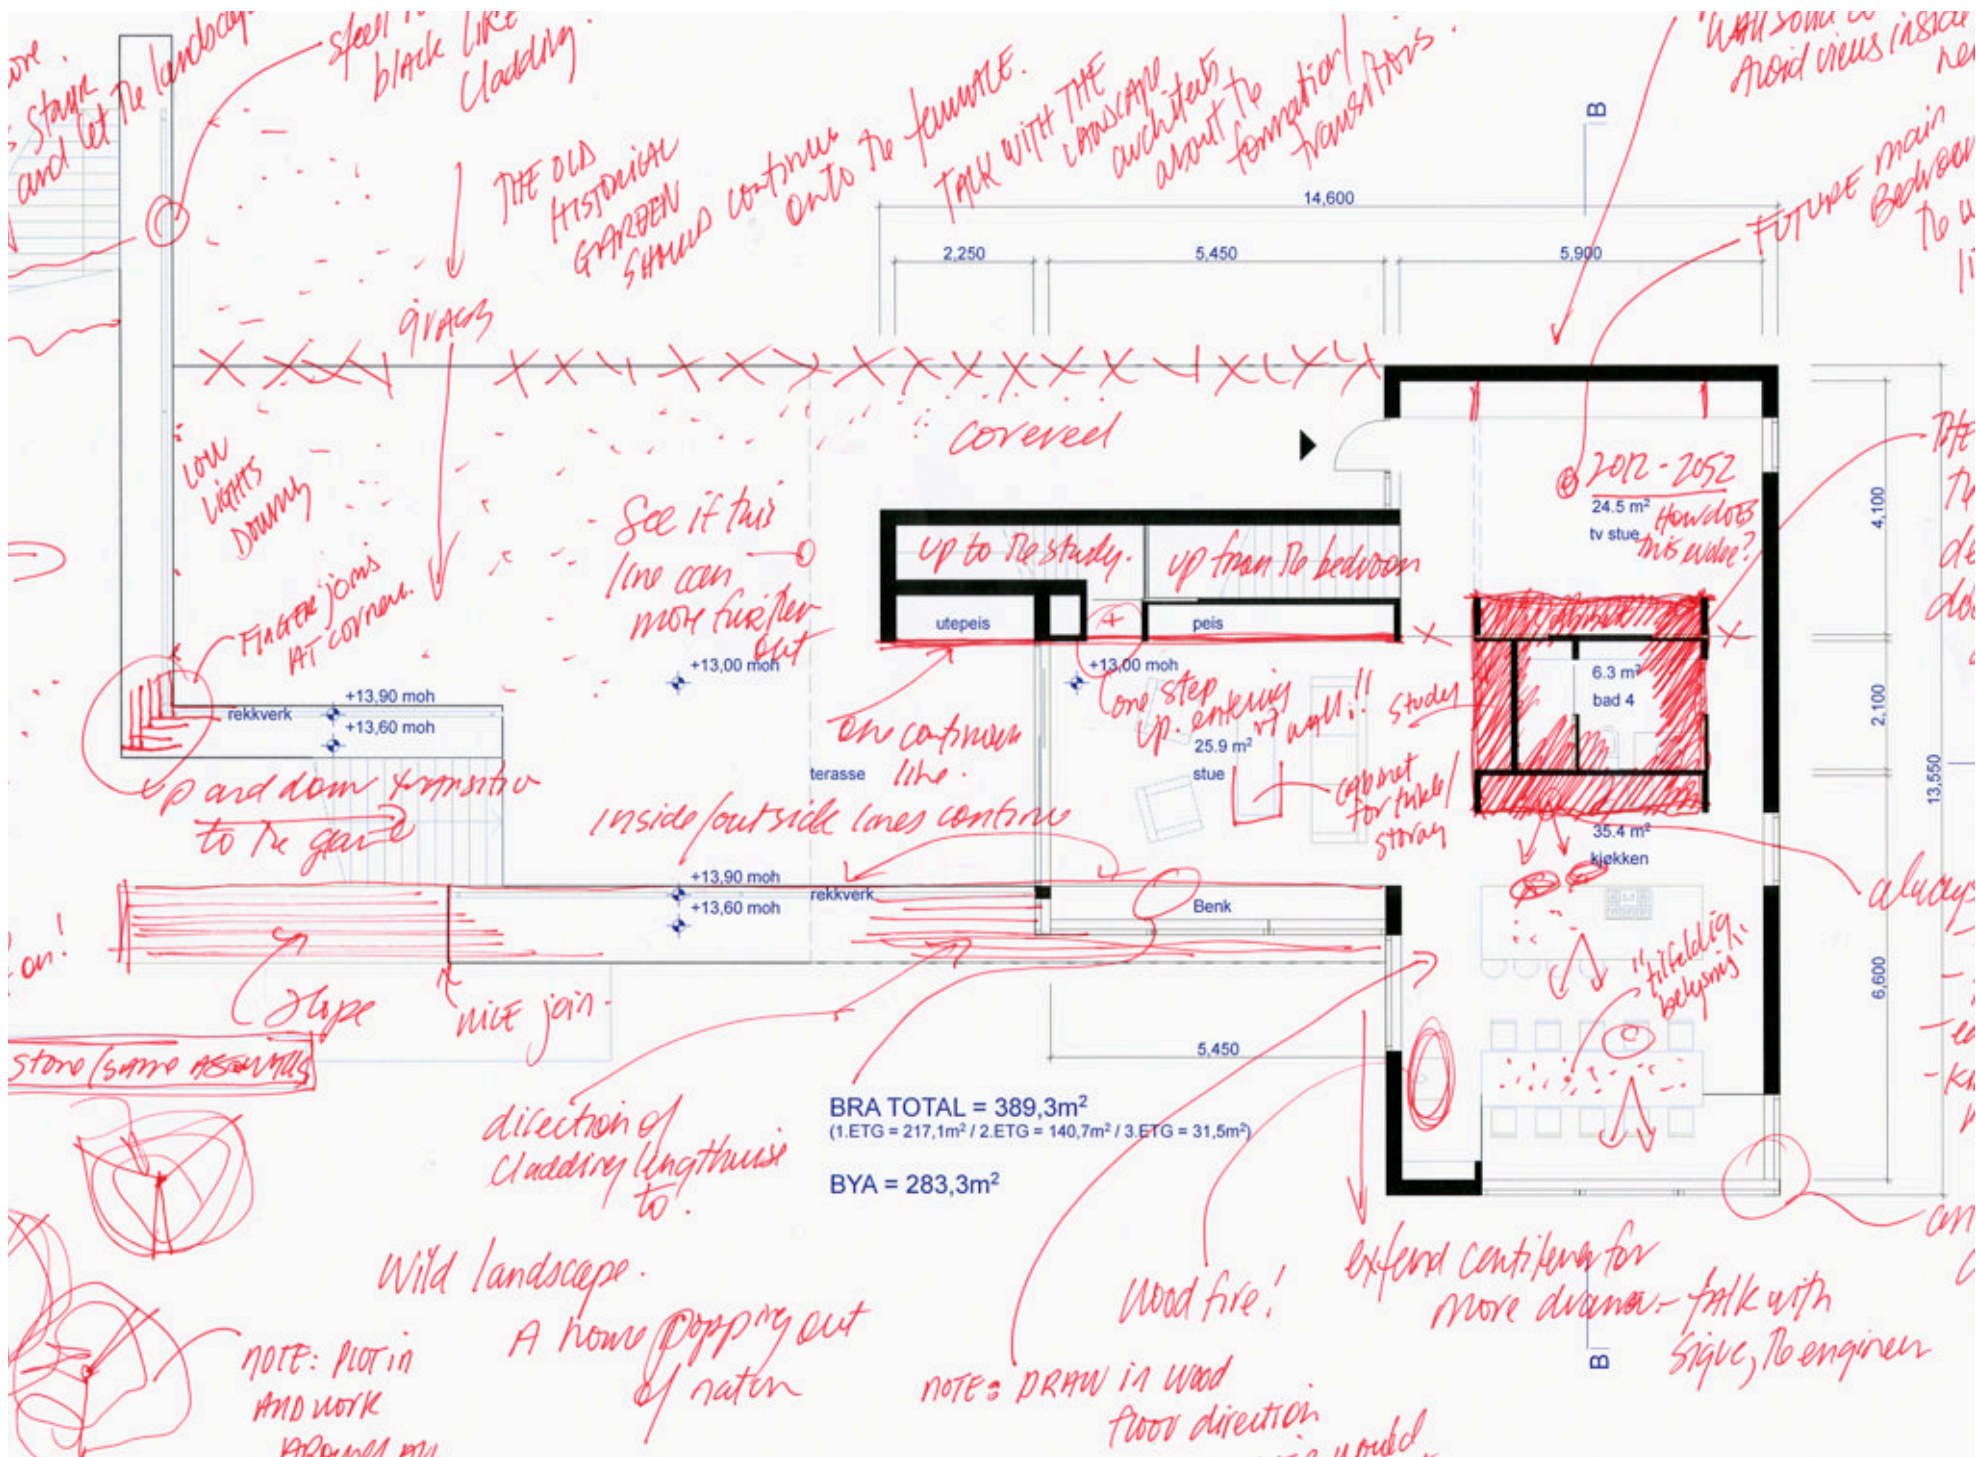 and let the landscap
black like
cladding.
THE OLD
HISTORICAL
GARDEN
SHOULD continue
onto the
TALK WITH THE
LANDSCAPE
architects
about the
formation/
transitions.
Avoid views inside
FUTURE main
Bedroom
B
14,600
2,250
5,450
5,900
grass
covered
LOW
LIGHTS
DOWN
See if this
line can
move further
out
2012 - 2052
24.5 m²
How does
tv stue
this evolve?
4,100
up to the study.
up from the bedroom
utepeis
peis
FINGER joins
AT corner.
+13,00 moh
+13,00 moh
one step
up. entering
wall!!
study
6.3 m²
bad 4
2,100
+13,90 moh
rekkverk
+13,60 moh
one continuous
line.
25.9 m²
stue
terasse
cabinet
for
storage
13,550
up and down transition
to the
inside/outside lines continue
35.4 m²
kjøkken
+13,90 moh
rekkverk
+13,60 moh
Benk
always
on!
"tilfeldig"
belysning
6,600
slope
nice join.
stone/same as walls
5,450
direction of
cladding lengthwise
to.
BRA TOTAL = 389,3m²
(1.ETG = 217,1m² / 2.ETG = 140,7m² / 3.ETG = 31,5m²)
BYA = 283,3m²
Wild landscape.
A home popping out
of nature
Wood fire!
extend cantilever for
more drama - talk with
the engineer
B
NOTE: PLOT in
AND WORK
NOTE: DRAW in wood
floor direction
would